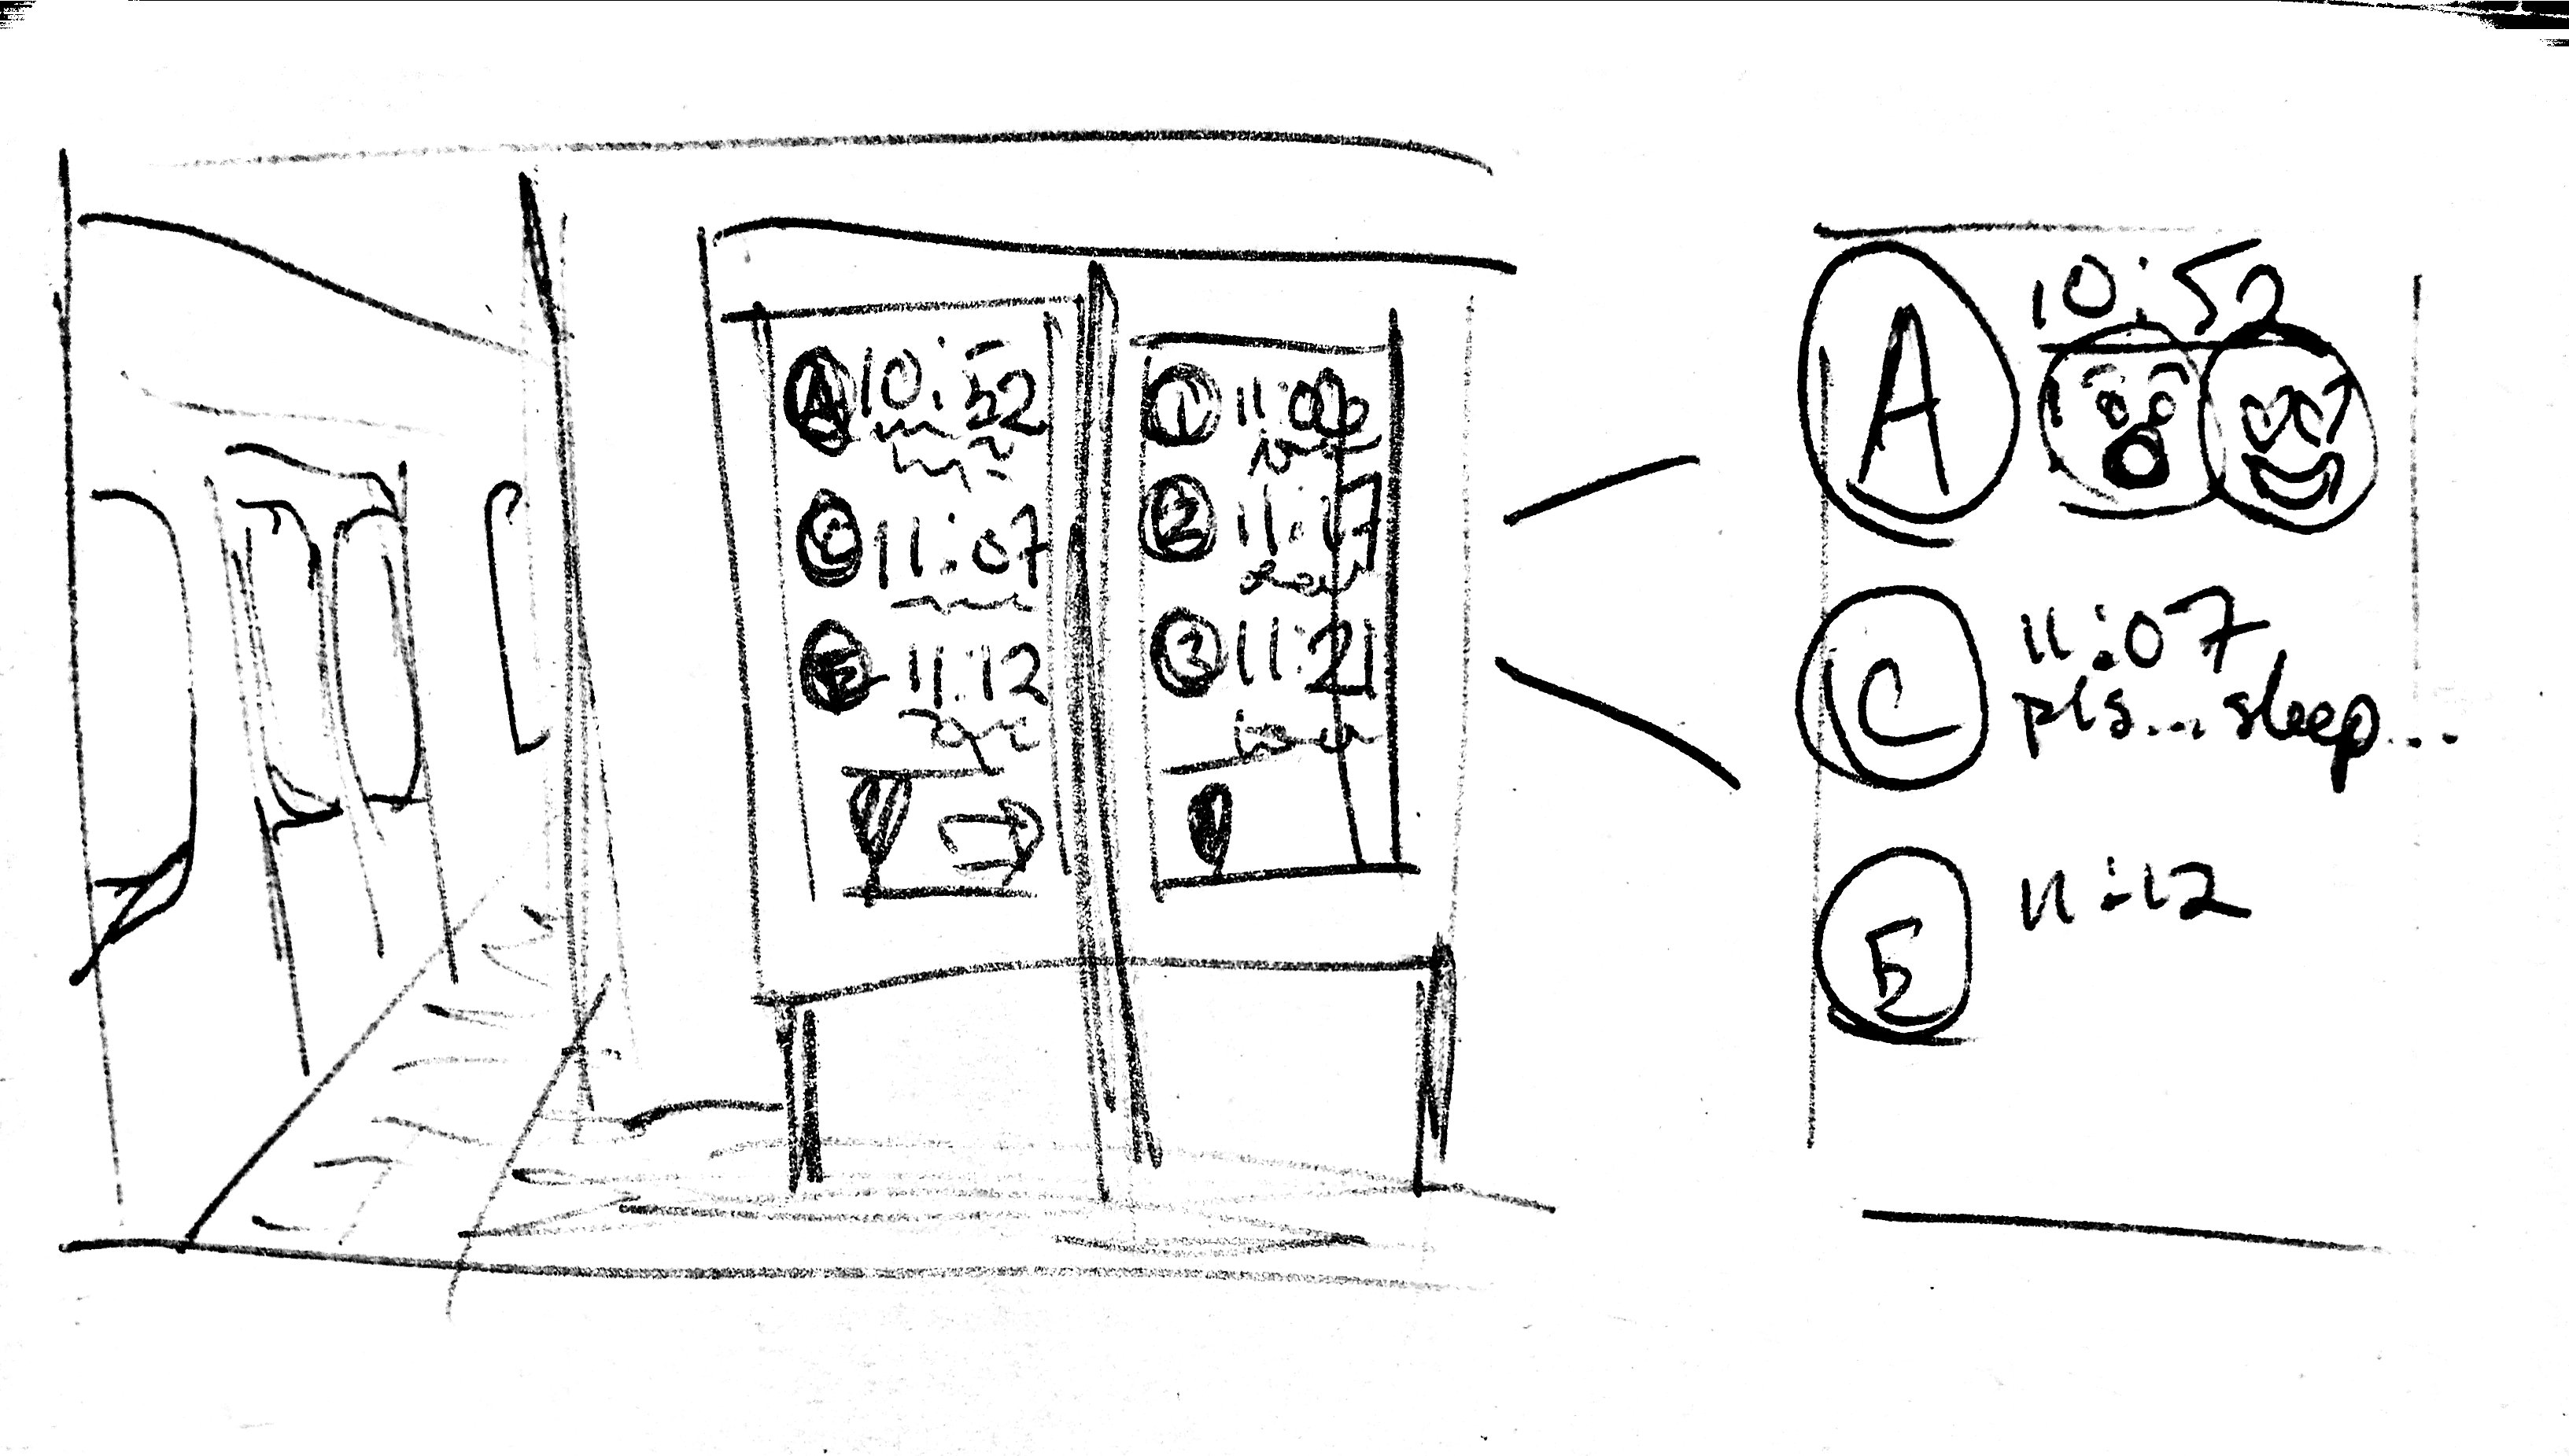 A 10:52
C 11:07
E 11:12
1 11:06
2 11:17
3 11:21
A 10:52
C 11:07
pls... sleep...
E 11:12